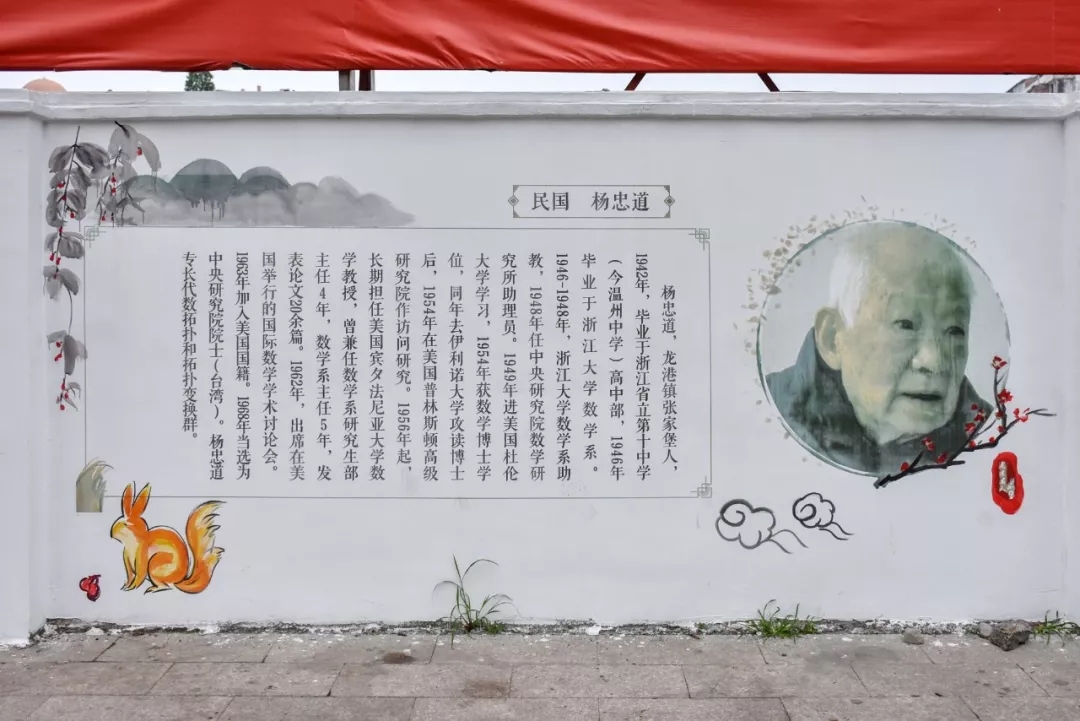 民国 杨忠道
杨忠道，龙港镇张家堡人，
1942年，毕业于浙江省立第十中学
（今温州中学）高中部，1946年
毕业于浙江大学数学系。
1946-1948年，浙江大学数学系助
教，1948年任中央研究院数学研
究所助理员。1949年进美国杜伦
大学学习，1954年获数学博士学
位，同年去伊利诺大学攻读博士
后，1954年在美国普林斯顿高级
研究院作访问研究。1956年起，
长期担任美国宾夕法尼亚大学数
学教授，曾兼任数学系研究生部
主任4年，数学系主任5年，发
表论文20余篇。1962年，出席在美
国举行的国际数学学术讨论会。
1963年加入美国国籍。1968年当选为
中央研究院院士（台湾）。杨忠道
专长代数拓扑和拓扑变换群。